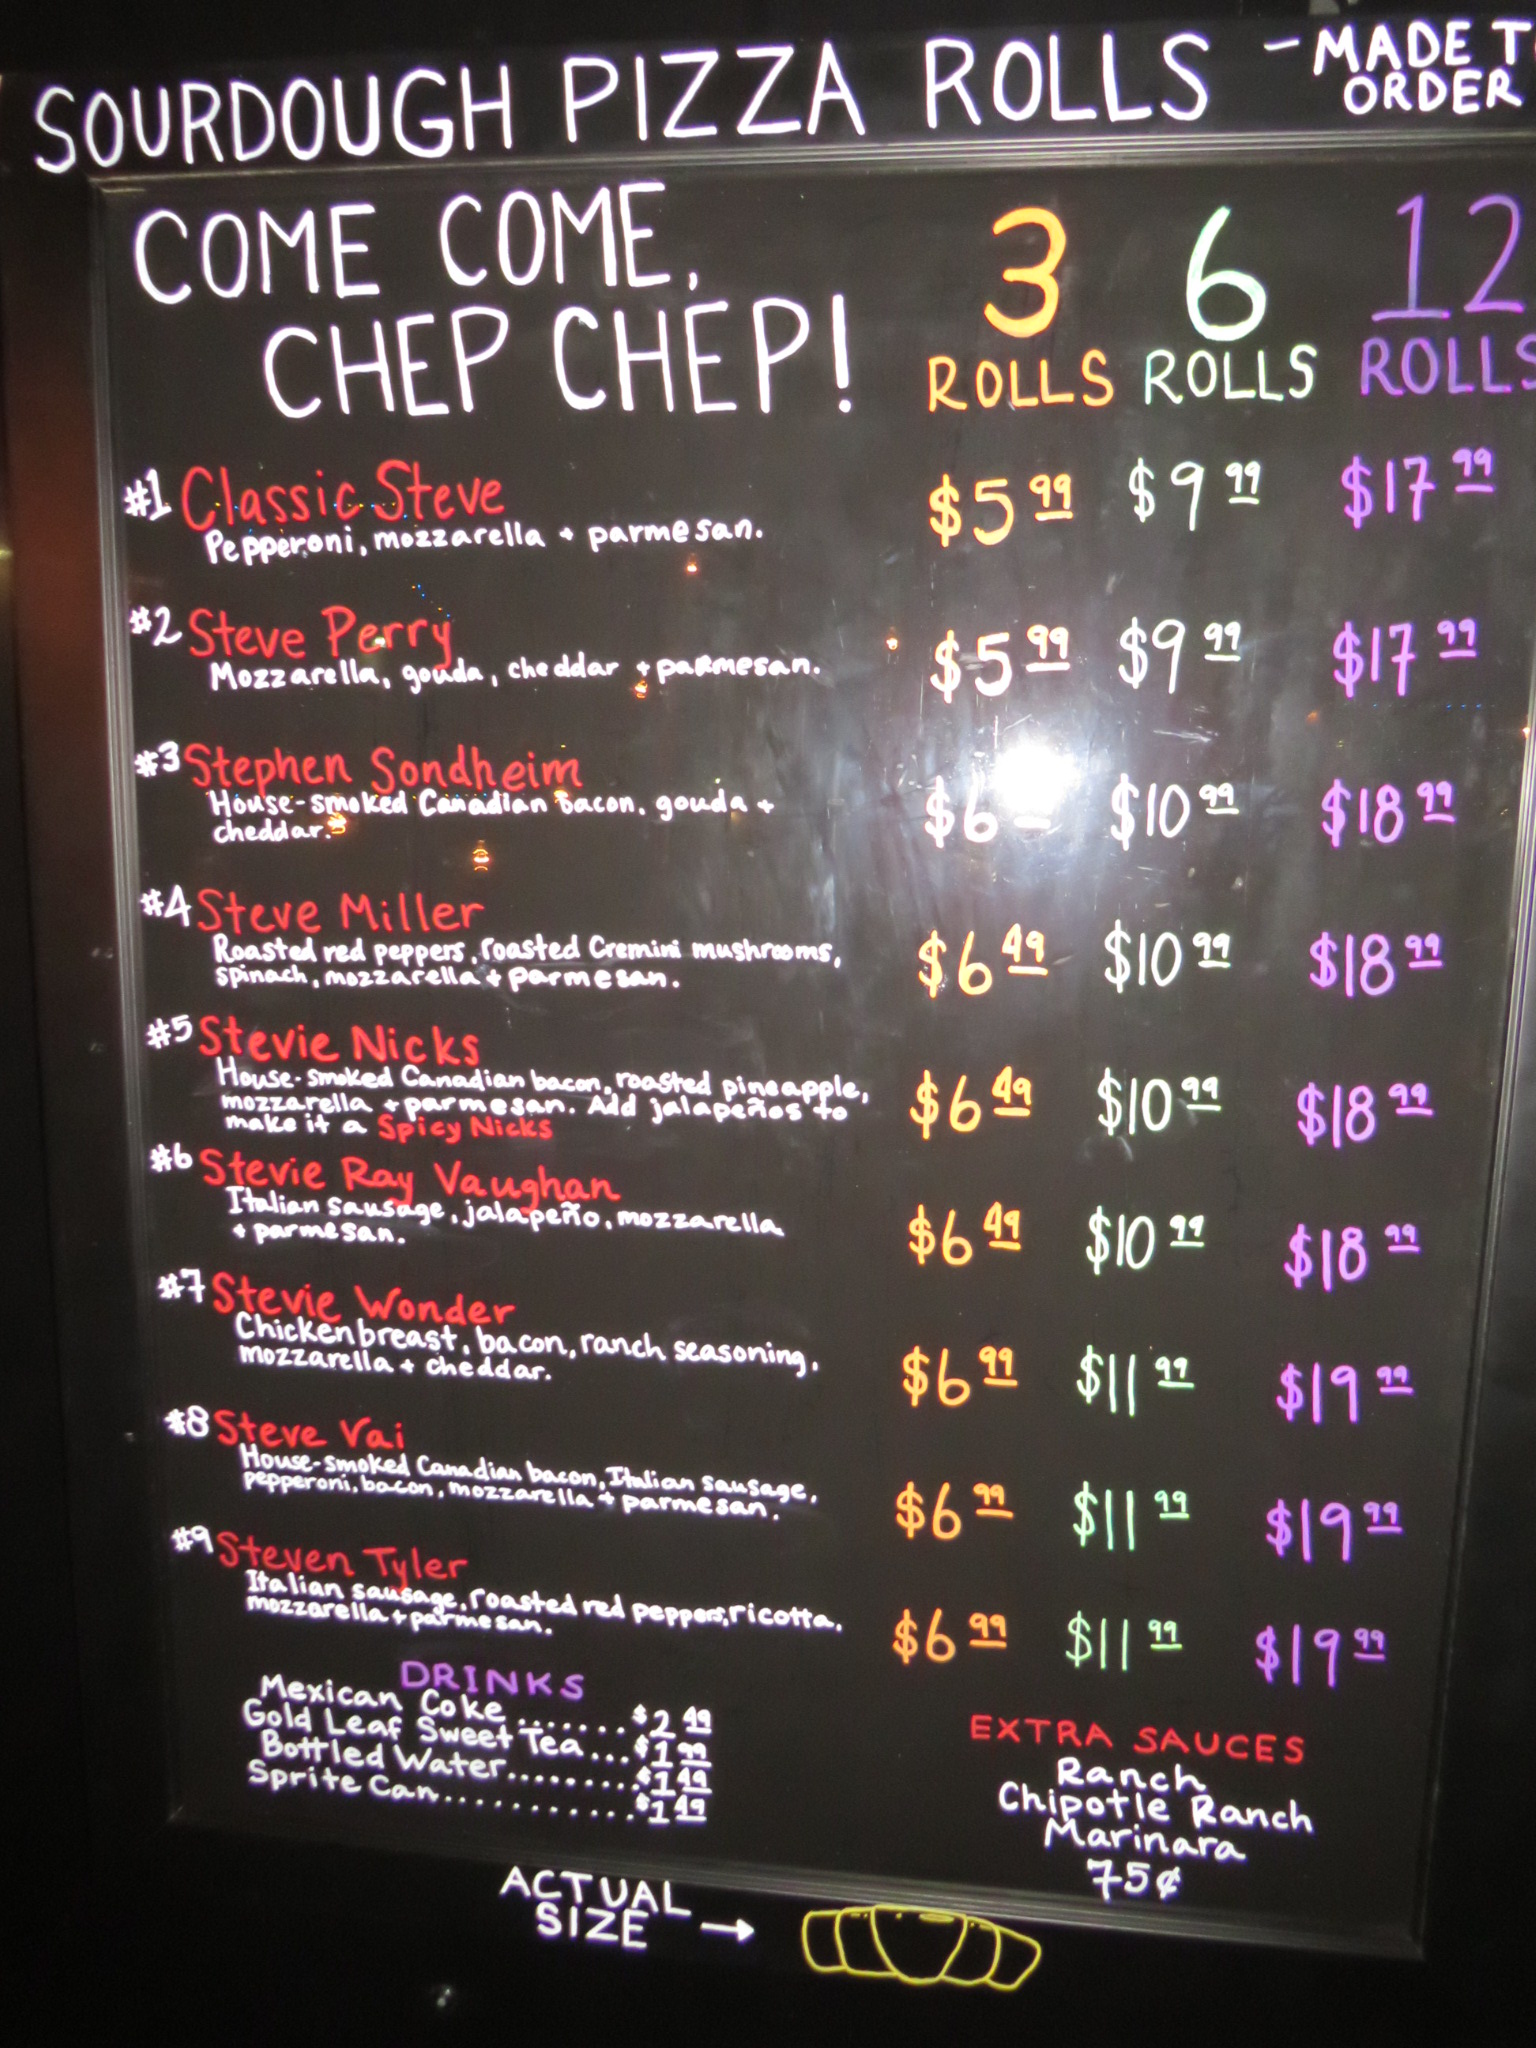 SOURDOUGH PIZZA ROLLS - MADE T
ORDER
COME COME,
CHEP CHEP!
3 ROLLS
6 ROLLS
12 ROLLS
#1 Classic Steve $5.99 $9.99 $17.99
Pepperoni, mozzarella + parmesan.
#2 Steve Perry $5.99 $9.99 $17.99
Mozzarella, gouda, cheddar + parmesan.
#3 Stephen Sondheim $6 $10.99 $18.99
House-smoked Canadian bacon, gouda +
cheddar.
#4 Steve Miller $6.49 $10.99 $18.99
Roasted red peppers, roasted Cremini mushrooms,
spinach, mozzarella + parmesan.
#5 Stevie Nicks $6.49 $10.99 $18.99
House-smoked Canadian bacon, roasted pineapple,
mozzarella + parmesan. Add jalapeños to
make it a Spicy Nicks
#6 Stevie Ray Vaughan $6.49 $10.99 $18.99
Italian sausage, jalapeño, mozzarella
+ parmesan.
#7 Stevie Wonder $6.99 $11.99 $19.99
Chicken breast, bacon, ranch seasoning,
mozzarella + cheddar.
#8 Steve Vai $6.99 $11.99 $19.99
House-smoked Canadian bacon, Italian sausage,
pepperoni, bacon, mozzarella + parmesan.
#9 Steven Tyler $6.99 $11.99 $19.99
Italian sausage, roasted red peppers, ricotta,
mozzarella + parmesan.
DRINKS
Mexican Coke ....... $2.49
Gold Leaf Sweet Tea... $1.99
Bottled Water......... $1.49
Sprite Can........... $1.49
EXTRA SAUCES
Ranch
Chipotle Ranch
Marinara
75¢
ACTUAL
SIZE →